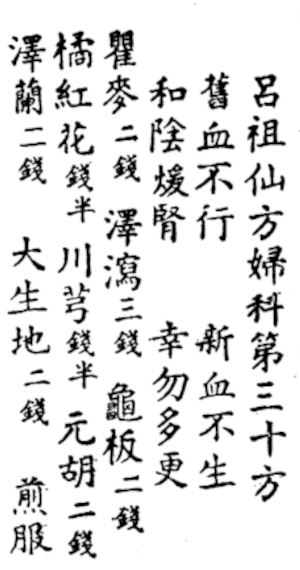 呂祖仙方婦科第三十方
舊血不行 新血不生
和陰煖腎 幸勿多更
瞿麥二錢 澤瀉三錢 龜板二錢
橘紅花錢半 川芎錢半 元胡二錢
澤蘭二錢 大生地二錢 煎服